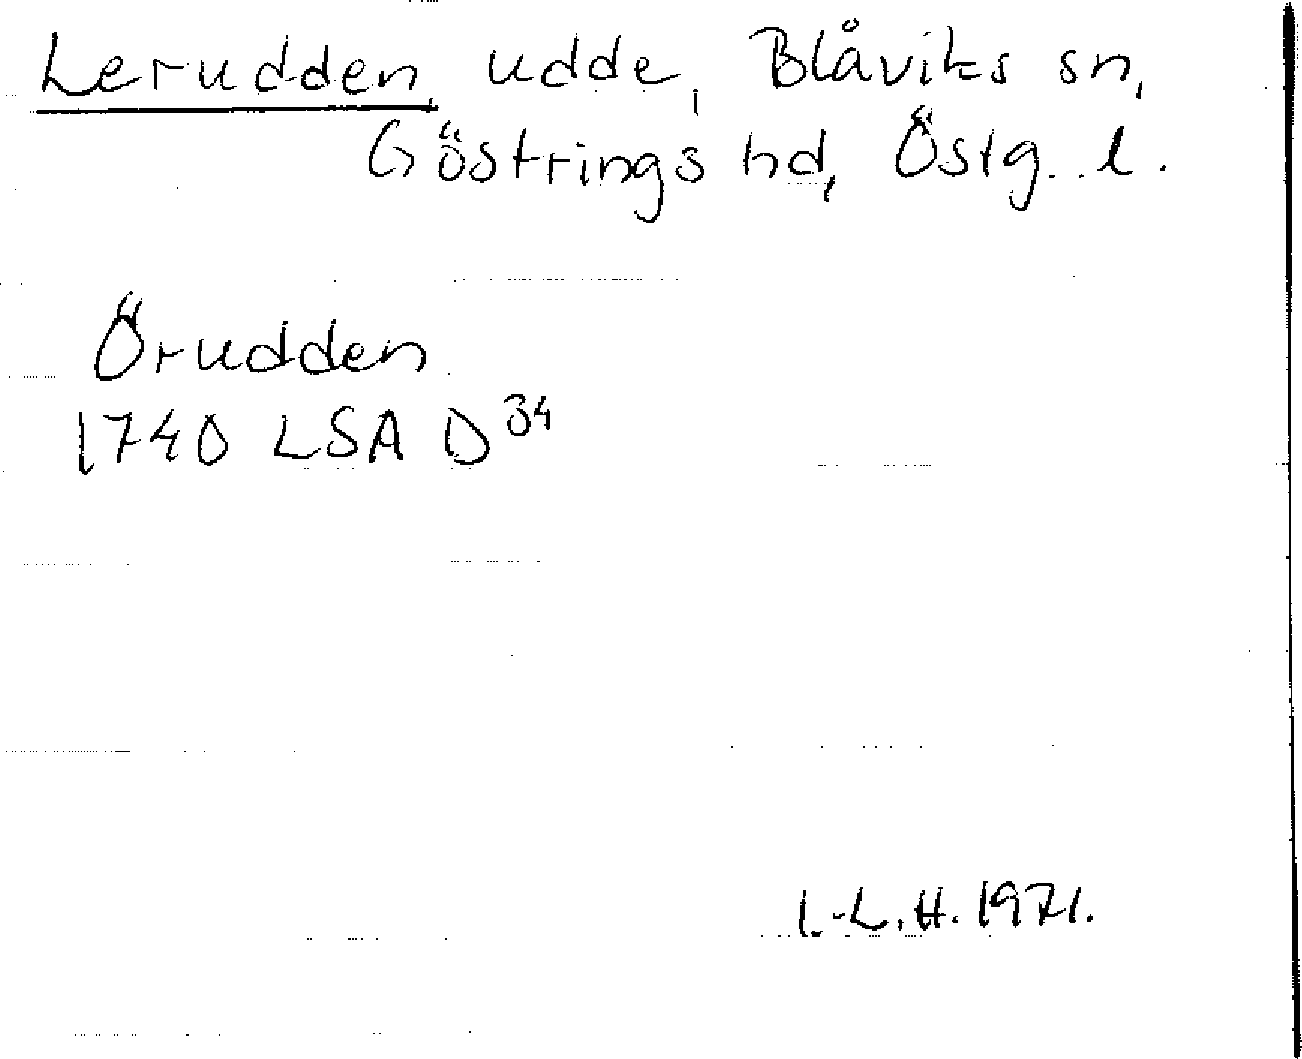 Lerudden, udde, Blåviks sn,
Göstrings hd, Östg. l.
Örudden
1740 LSA D 34
I.-L.H. 1971.